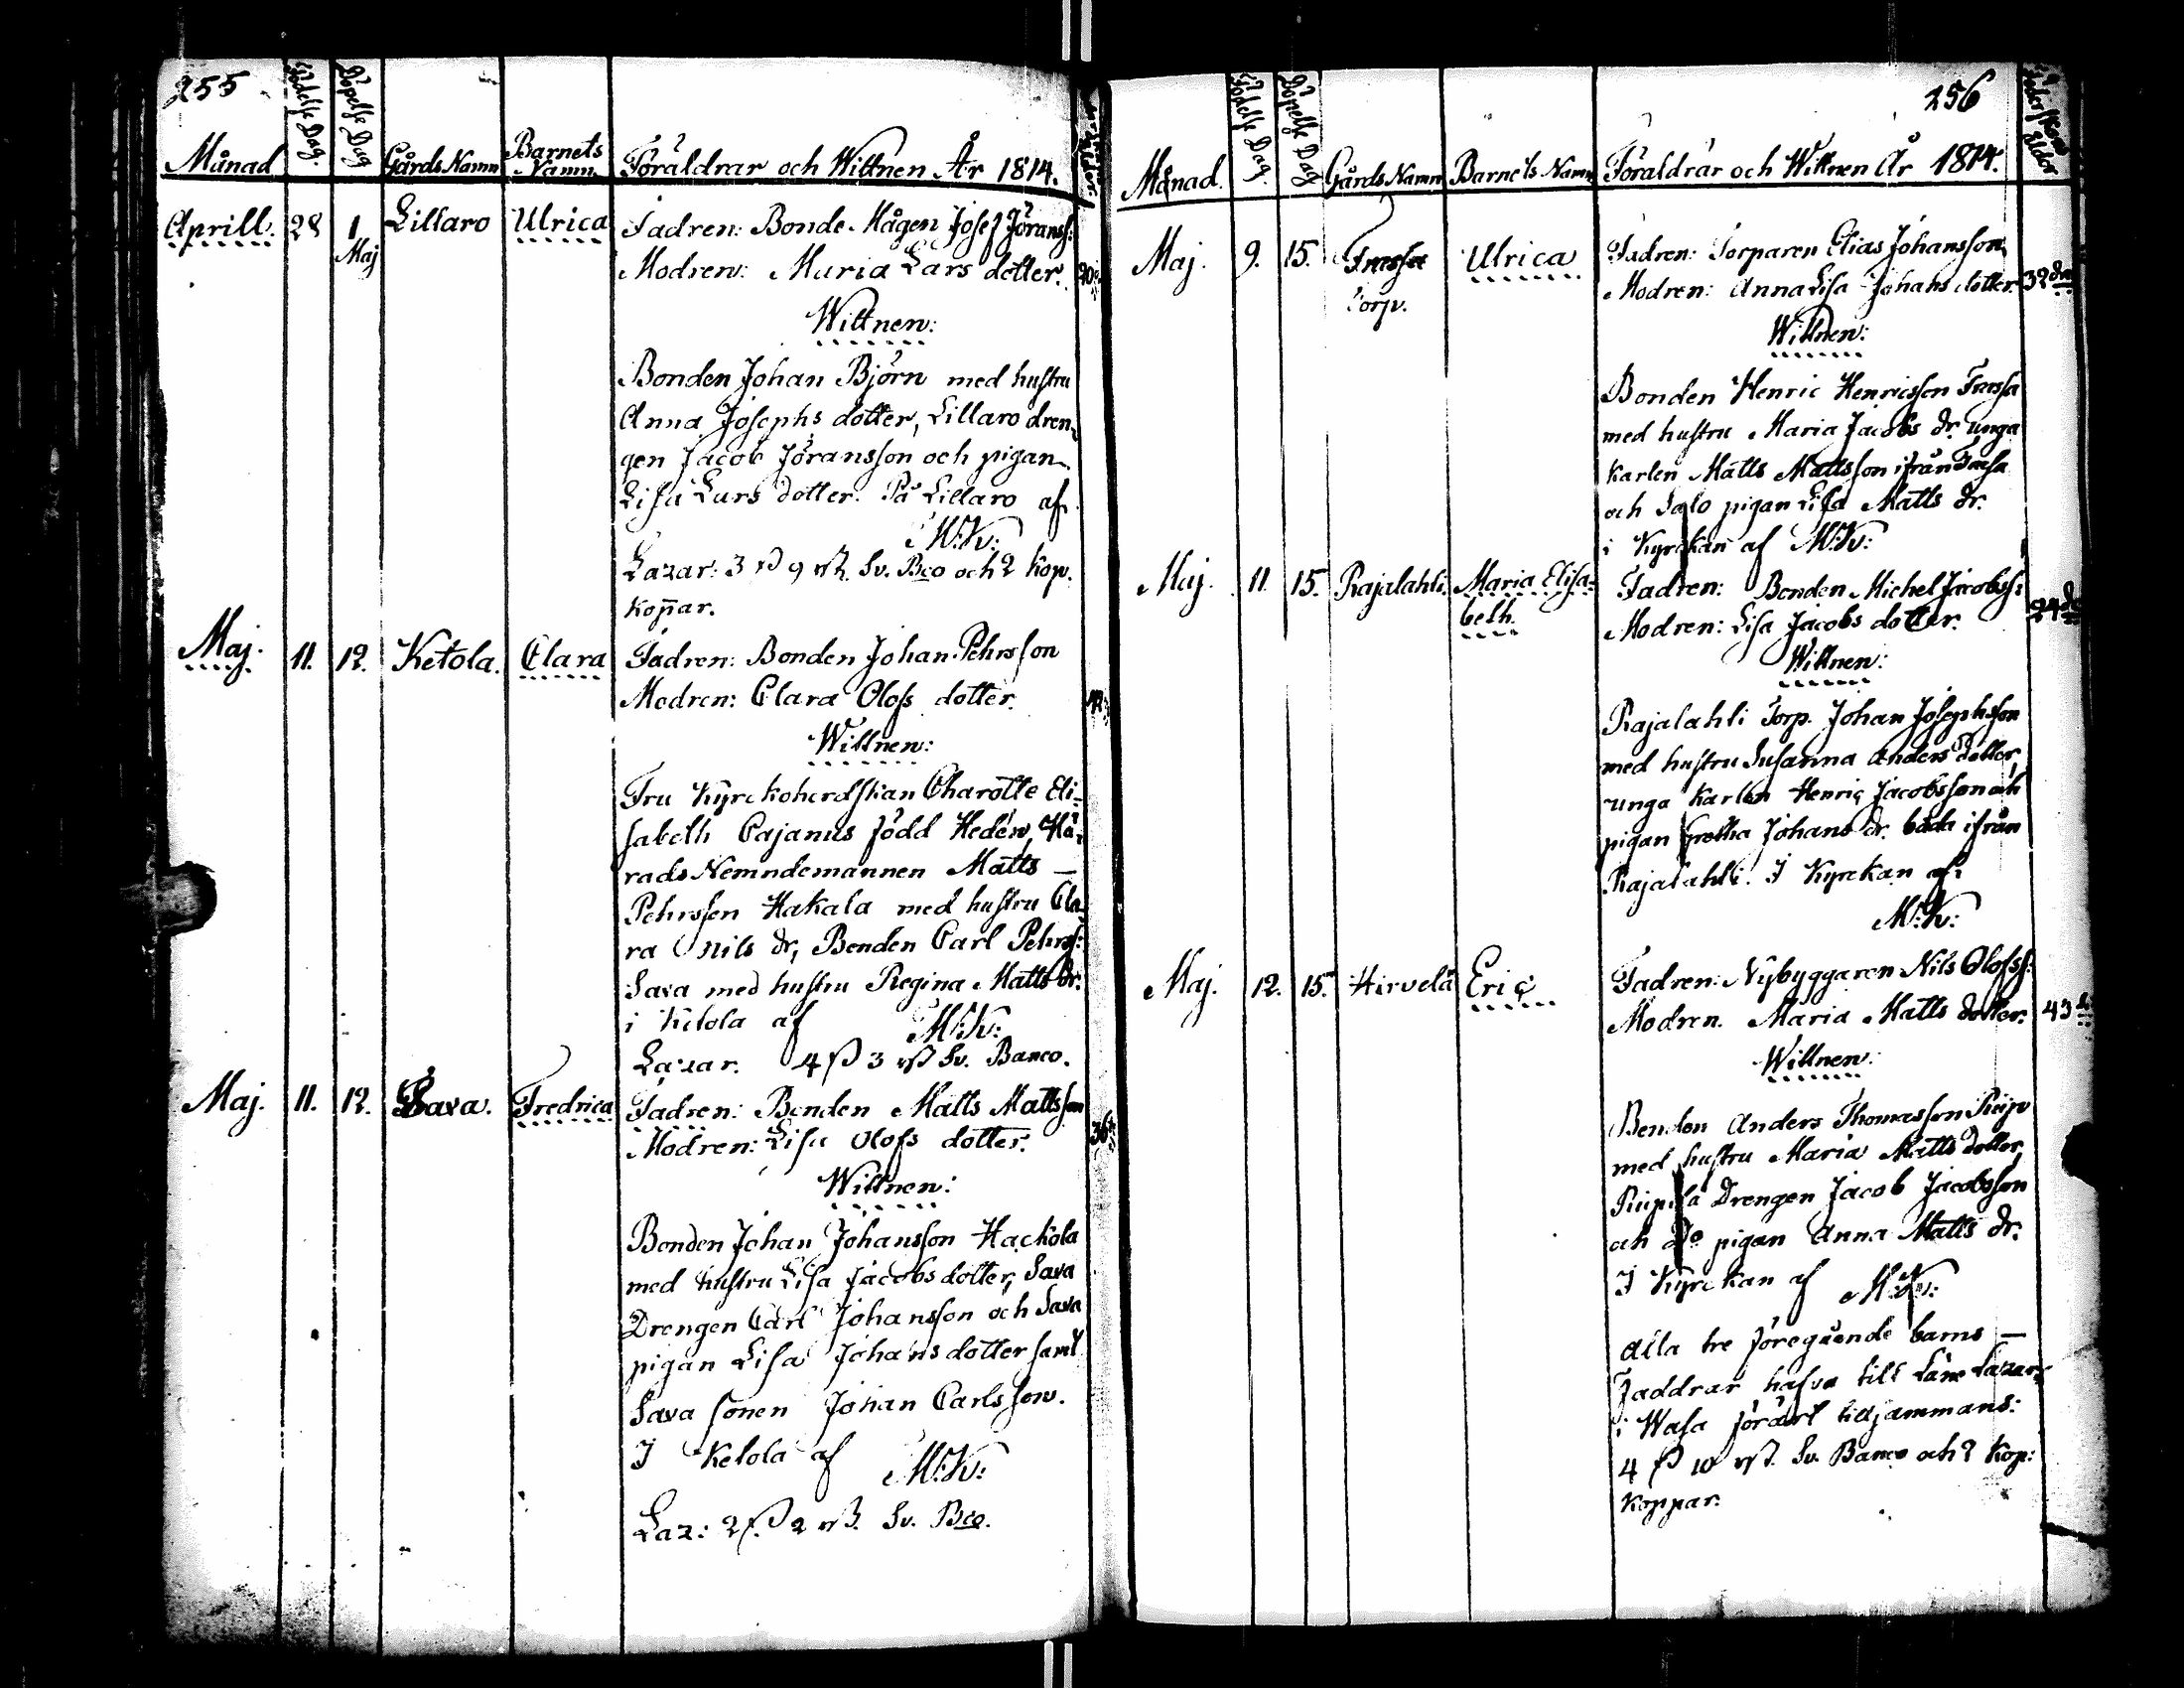 255
Månad
Födelse Dag.
Döpelse Dag
Gårds Namn
Barnets Namn
Föräldrar och Wittnen År 1814.
Aprill. 28 1 Maj Lillaro Ulrica Fadren: Bonde Mågen Josef Jöranss:
Modren: Maria Lars dotter.
Wittnen:
Bonden Johan Björn med hustru
Anna Josephs dotter, Lillaro dren
gen Jacob Jöransson och pigan
Lisa Lars dotter. På Lillaro af
M:K:
Lazar: 3 ß 9 rst. Sv. Bco och 2 kop.
koppar.
Maj. 11. 12. Ketola. Clara Fadren: Bonden Johan Pehrsson
Modren: Clara Olofs dotter.
Wittnen:
Fru Kyrckoherdskan Charotte Eli-
sabeth Cajanus född Hedén, Hä-
rads Nemndemannen Matts —
Pehrsson Hakala med hustru Cla-
ra Nils dr, Bonden Carl Pehrss:
Sava med hustru Regina Matts dr:
i Ketola af M:K:
Lazar. 4 ß 3 rst Sv. Banco.
Maj. 11. 12. Sava. Fredrica Fadren: Bonden Matts Mattsson
Modren: Lisa Olofs dotter. 36
Wittnen:
Bonden Johan Johansson Hackola
med hustru Lisa Jacobs dotter, Sava
Drengen Carl Johansson och Sava
pigan Lisa Johans dotter samt
Sava sonen Johan Carlsson.
I Ketola af
M:K:
Laz: 2 ß 2 rst. Sv. Bco.
256
Månad.
Födelse Dag.
Döpelse Dag
Gårds Namn
Barnets Namn
Föräldrar och Wittnen År 1814.
Maj. 9. 15. Torp. Ulrica Fadren: Torparen Elias Johansson
Modren: Anna Lisa Johans dotter. 32
Wittnen:
Bonden Henric Henricsson
med hustru Maria Jacobs dr. unga
karlen Matts Mattsson ifrån
och Salo pigan Lisa Matts dr.
i Kyrckan af M:K:
Maj. 11. 15. Rajalahti. Maria Elisa-
beth. Fadren: Bonden Michel Jacobss:
Modren: Lisa Jacobs dotter. 24
Wittnen:
Rajalahti Torp. Johan Josephsson
med hustru Susanna Anders dotter,
unga karlen Henric Jacobsson och
pigan Gretha Johans dr. båda ifrån
Rajalahti. I Kyrckan af
M:K:
Maj. 12. 15. Hirvelä Eric Fadren: Nybyggaren Nils Olofss:
Modren. Maria Matts dotter. 43
Wittnen:
Bonden Anders Thomasson
med hustru Maria Matts dotter,
Drengen Jacob Jacobsson
och do pigan Anna Matts dr.
I Kyrckan af M:K:
Alla tre föregående barns —
faddrar hafva till Läns Lazar:
i Wasa förärt tillsammans:
4 ß 10 rst. Sv. Banco och 2 kop:
koppar.